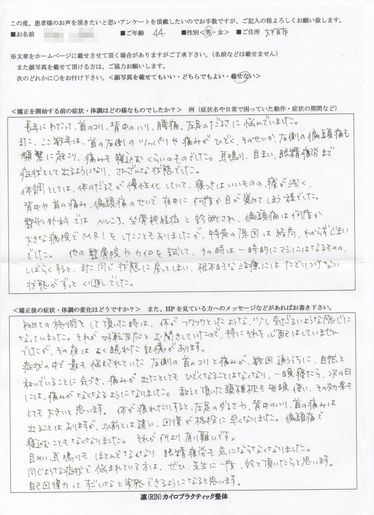 この度、患者様のお声を頂きたいと思いアンケートを頂戴したいのでお手数ですが、ご記入の程よろしくお願い致します。
■お名前 ■ご年齢 44 ■性別(男・女) ■ご住所
※文章をホームページに載せさせて頂く場合がありますがご了承下さい。(名前などは載せません)
また顔写真を載せさせて頂ける方は、ご協力お願いします。
次のどれかに○をお付け下さい。(顔写真を載せてもいい・どちらでもよい・載せない)
<矯正を開始する前の症状・体調はどの様なものでしたか? 例(症状名や日常で困っていた動作・症状の期間など)
長年にわたって、首のコリ、背中のハリ、腰痛、左足のだるさに悩んでいました。
また、ここ数年は、首の左側のツッパリや痛みがひどく、そのせいか左側の偏頭痛も
頻繁に起こり、痛みも寝込むくらいのものでした。耳鳴り、目まい、眼精疲労まで
症状として出るようになり、さんざんな状態でした。
体調としては、体のだるさが慢性化していて、寝つきはいいものの、眠が浅く、
背中や首の痛み、偏頭痛のせいで夜中に何度か目が覚めてしまう程でした。
整形外科ではヘルニア、脊椎 と診断され、偏頭痛は何度か
大きな病院でMRIをしたこともありましたが、特に 原因は結局、わからずじまい
でした。他の整骨院やカイロを試して、その時は一時的にマシにはなるものの、
しばらくすると、また同じ状態に戻ってしまい、根本的な治療にはたどりつけない
状態がずっと続いてました。
<矯正後の症状・体調の変化はどうですか? また、HPを見ている方へのメッセージなどがあればお書き下さい。
初めての施術をして頂いた時は、体がフワフワしたような、少し気だるいような感じに
なっていました。それが好転反応とお聞きしていたので、特にそれを心配はしていません
でしたが、その夜はよく眠れた記憶があります。
症状の中で最も悩まされていた左側の首のコリと痛みが、数回通ううちに、自然と
和らいでいることに気づき、痛みが出たとしてもひどくなることはなくなり、一晩寝たら、次の日
には、痛みがなくなるようになりました。 枕も毎晩使い、その効果も
とても大きいと思います。体が疲れたりすると、左足のダルさや、背中のハリ、首の痛みは
出ることはありますが、以前とは違い、回復が格段に早くなりました。偏頭痛で
寝込むこともなくなりました。それが何より有り難いです。
目めい、耳鳴りもほとんどなくなり、眼精疲労も気にならなくなりました。
同じような症状で悩まされている方は、ぜひ、先生に一度、診て頂いたらと思います。
自己回復力ってすごいなと実感できるようになると思います。
凛(RIN)カイロプラクティック整体